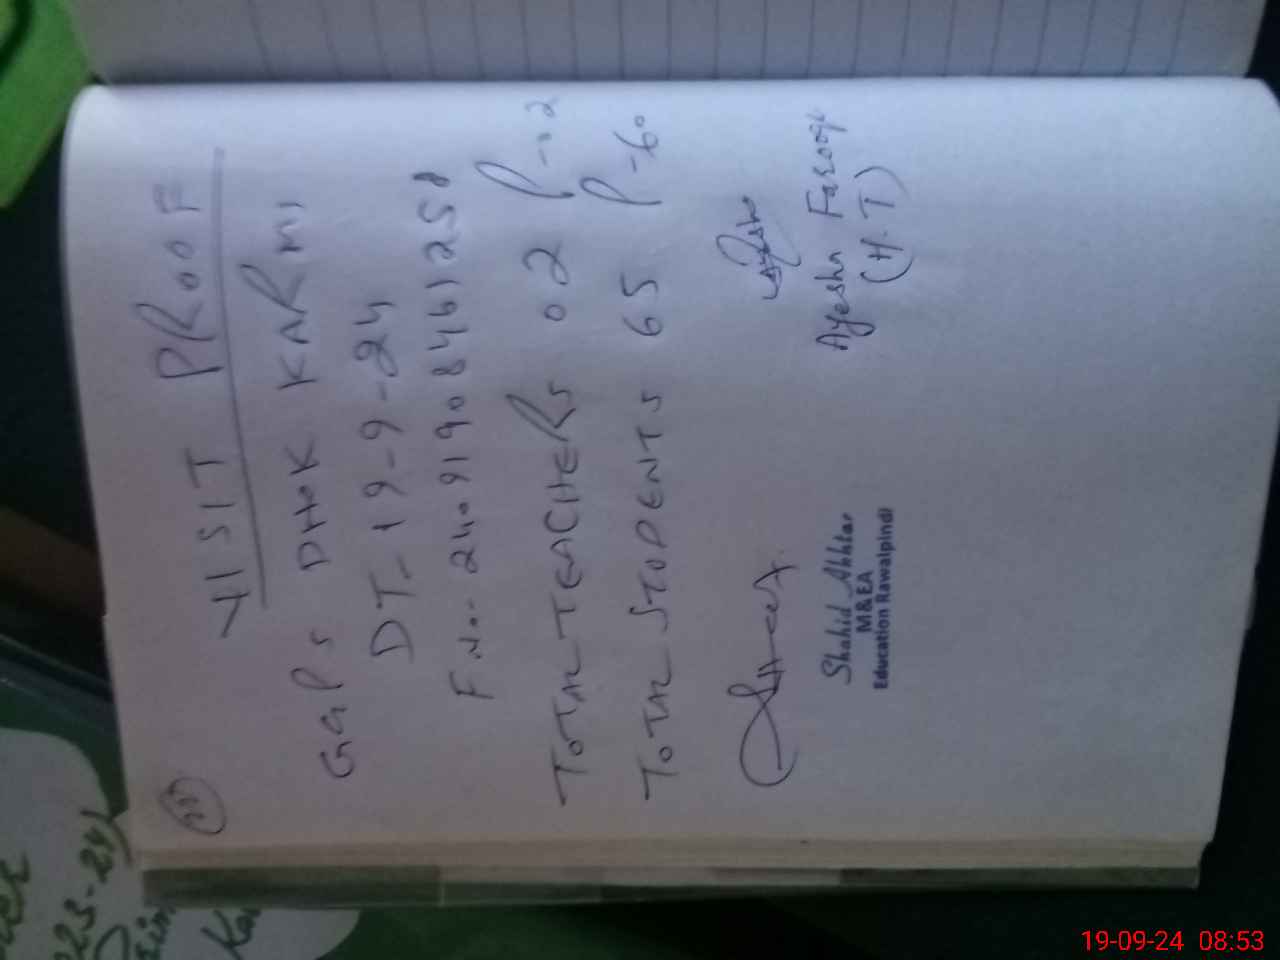 VISIT PROOF
GGPS DHOK KARMI
DT-19-9-24
F No- 24091908461258
TOTAL TEACHERS 02 P-02
TOTAL STUDENTS 65 P-60
Ayesha Farooq
(H.T)
Shahid Akhtar
M&EA
Education Rawalpindi
19-09-24 08:53